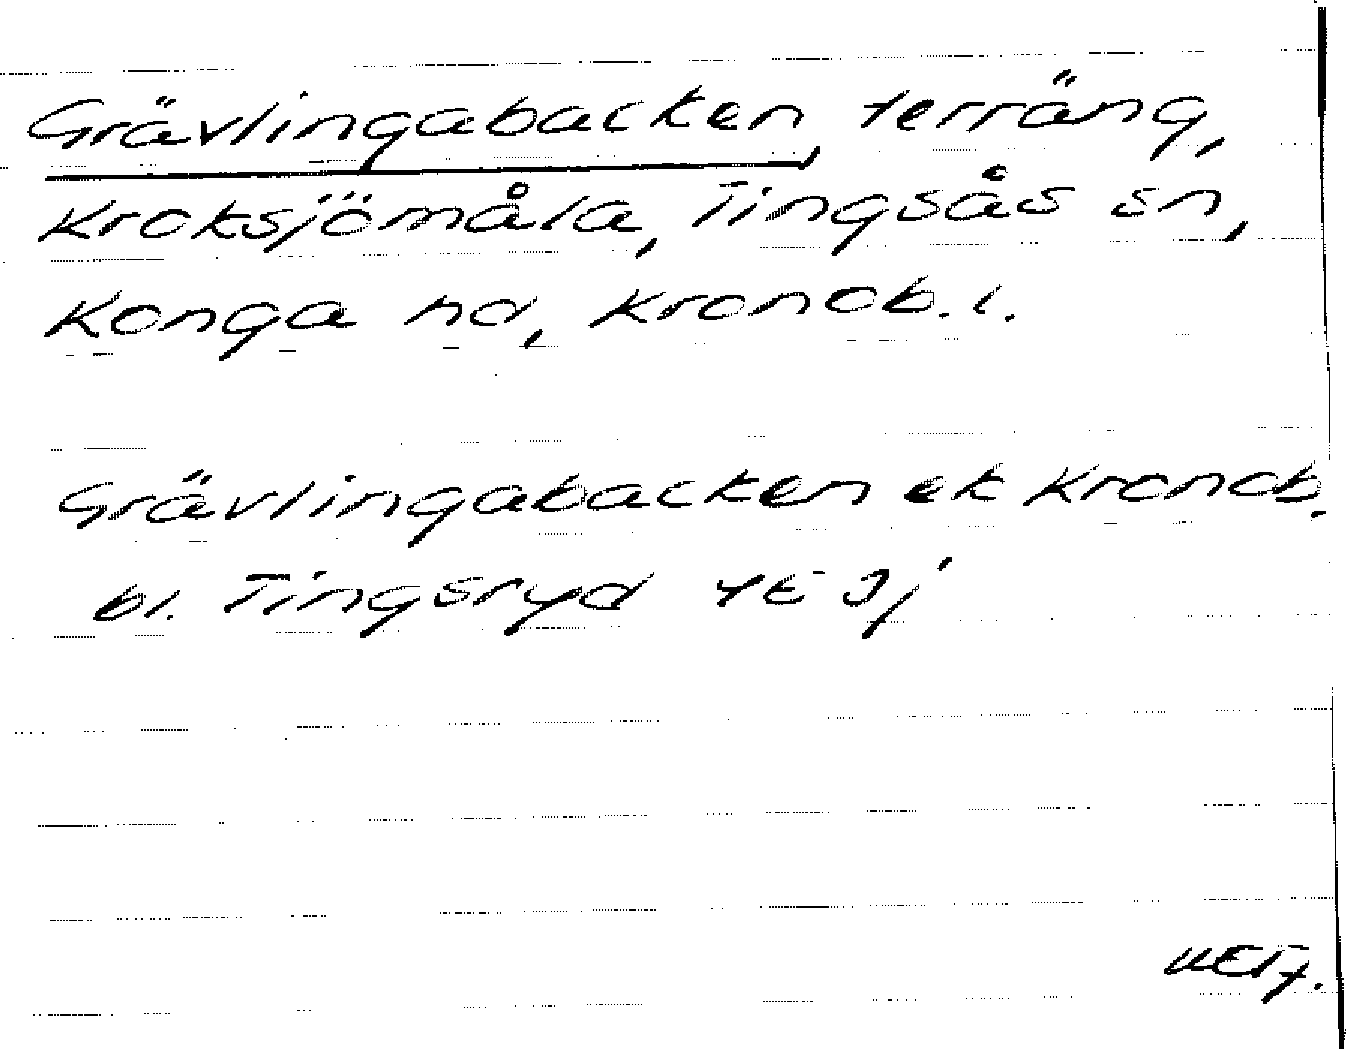 Grävlingabacken, terräng,
Kroksjömåla, Tingsås sn,
Konga hd, Kronob. l.
Grävlingabacken ek Kronob.
bl. Tingsryd 4E 3j